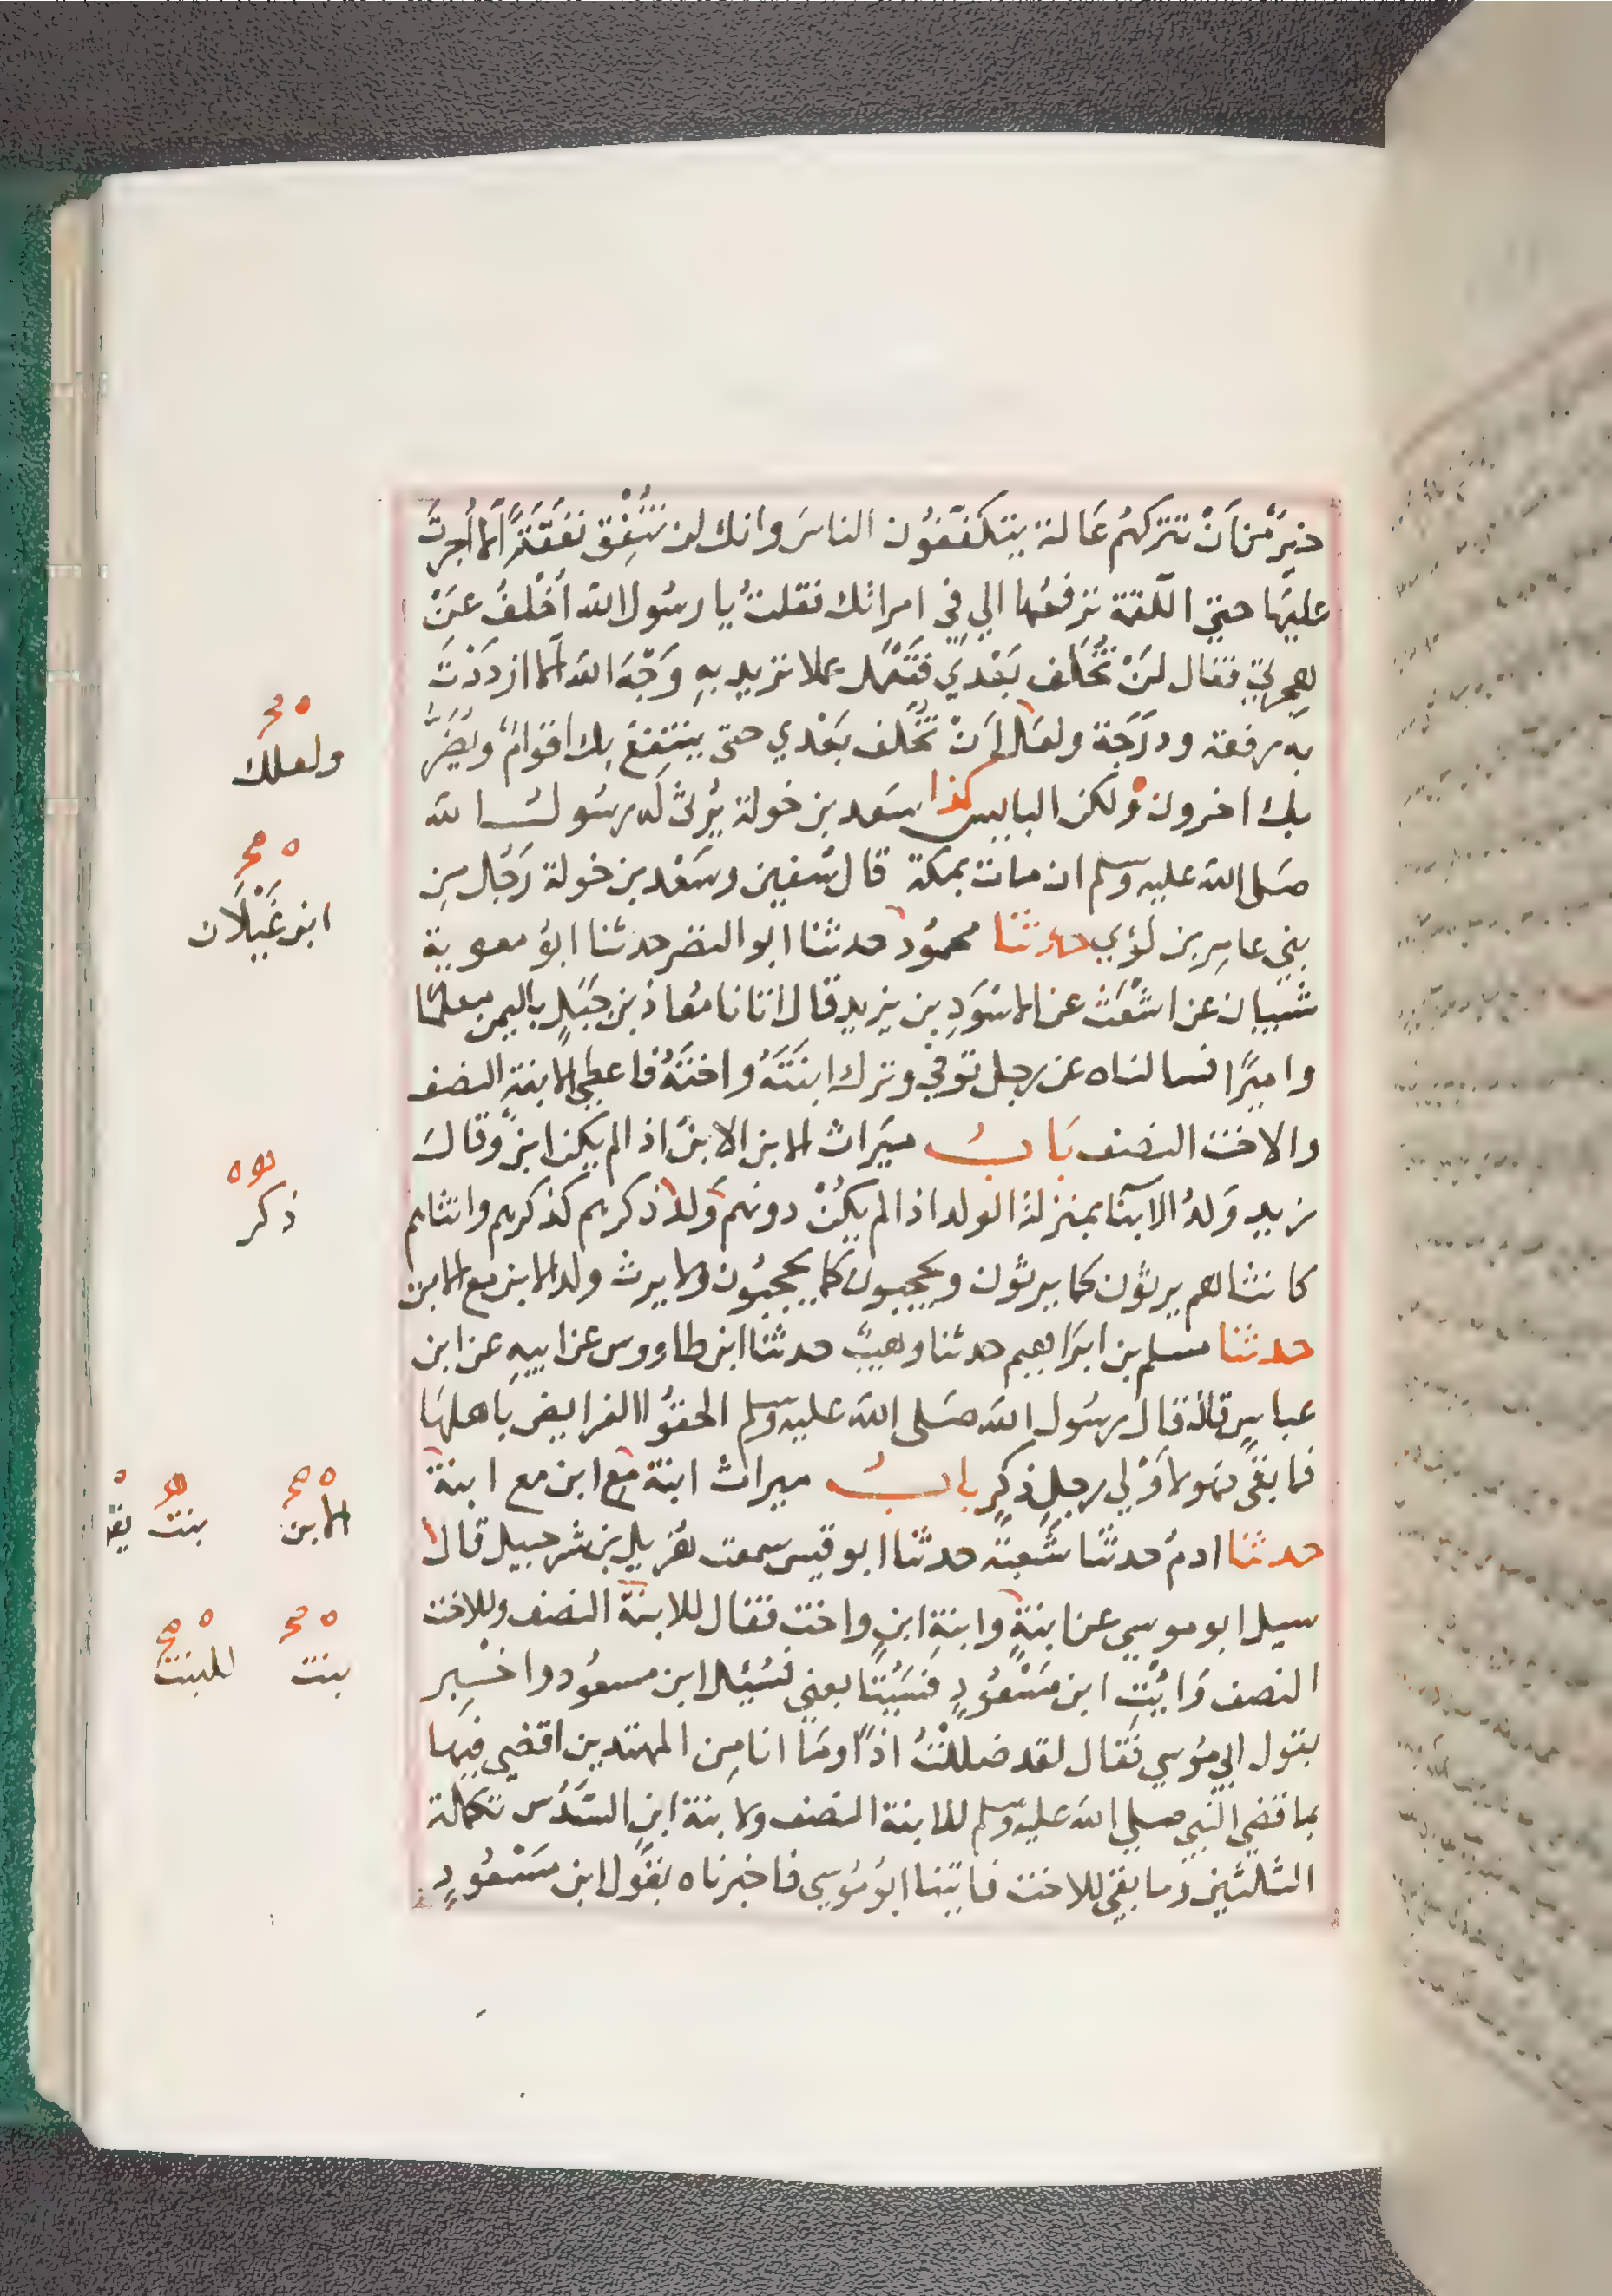 خيرٌ مِّن اَنْ تتركهُم عَالة يتكفَّفُون الناسَ وانك لن تُنْفِق نَفَقَةً اِلا اُجِرتَ
عليهَا حتي اللقمة ترفعُها الي فِي امراتك فقلتُ يا رسُول الله اُخْلَفُ عَنْ
هِجرتِي فقال لَنْ تُخَلَّف بَعْدِي فَتَعْمَل عملا تريد بِهِ وَجْهَ الله اِلا ازددْتَ
به رفعة ودرَجَة ولعَل اَنْ تُخَلَّف بَعْدي حتى ينتفِعَ بِك اقوامٌ ويُضَرَّ
بك اخرون ولكن البايس كذا سَعد بن خولة يَرْثِي لَه رسُول الله
صَلى الله عليه وسلم ان مات بمكة قال سُفين وسَعْد بن خولة رَجُل مِن
بني عامِر بن لؤي حدثنا محمُود حدثنا ابو النضر حدثنا ابوُ معوية
شَيبان عن اشْعَث عن الاسْوَدِ بن يزيد قال اتانا مُعاذ بن جَبَلٍ باليمن معلمًا
واميرًا فسالناه عن رجل توفي وترك ابنَتَهُ واختَهُ فاعطي الابنة النصف
والاخت النصف بَابُ ميَراث ابن الابن اذا لم يكن ابنٌ وقال
زيد وَلدُ الابنَا بمنزلة الولد اذا لم يكُنْ دونهم وَلدٌ ذكرهم كذكرهم وانثاهم
كانثاهم يرثون كما يرثون ويحجبون كما يحجبُون ولا يرث ولد الابن مع الابن
حدثنا مسلم بن ابرَاهيم حدثنا وهيبٌ حدثنا ابن طاووس عن ابيهِ عن ابن
عباسٍ قال قال رسُول الله صَلى الله عليه وسلم الحقوُا الفرايض باهلهَا
فما بقَى فهَو لاَوْلي رجلٍ ذكرٍ بابُ ميراث ابنة مع ابن مع ابنة
حدثنا ادمُ حدثنا شُعبة حدثنا ابو قيس سمعت هُزيل بن شرحبيل قال
سيل ابو موسي عن ابنةٍ وابنةِ ابنٍ واختٍ فقال للابنة النصف وللاخت
النصف وَايْتِ ابن مَسْعُودٍ فسَيُتَابعني فسُئِل ابن مسعُود واخْبِر
بقول ابي مُوسي فقال لقد ضللتُ اذًا ومَا انا مِن المهتدين اقضي فيها
بما قضي النبي صلي الله عليه وسلم للابنة النصف ولابنة ابنٍ السُّدُس تكملة
الثلثين وما بقي للاخت فاتينا ابُو مُوسي فاخبرناه بقَول ابن مَسْعُودٍ
ه صح
ولعلك
ه صح
ابن غَيْلَان
ذكر
ه صح
الابن
بنت
ه صح
بنت
ه صح
للبنت